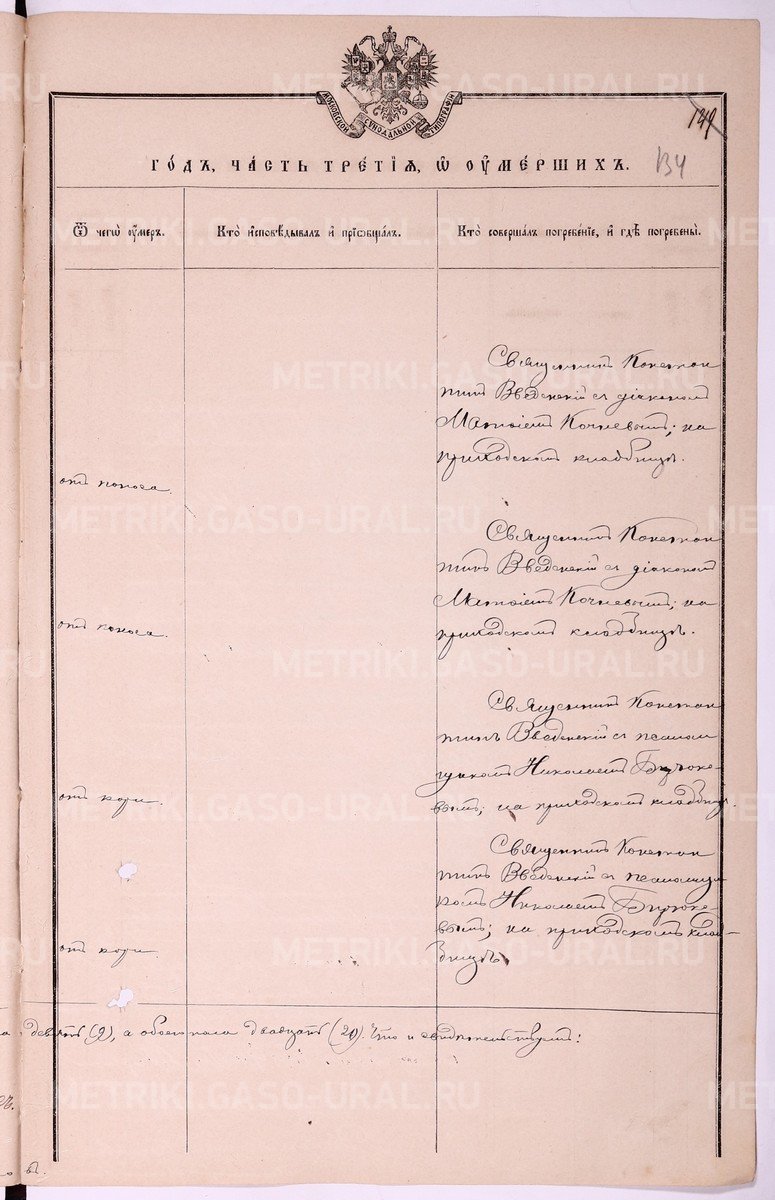 МОСКОВСКОЙ СѴНОДАЛЬНОЙ ТИПОГРАФІИ
149
134
ГО́ДЪ, ЧА́СТЬ ТРЕ́ТІѦ, Ѡ҆ ОУ҆МЕ́РШИХЪ.
Ѿ чегѡ̀ оу҆́меръ.
Кто̀ и҆сповѣ́дывалъ и҆ прїѡбща́лъ.
Кто̀ соверша́лъ погребе́нїе, и҆ гдѣ̀ погребены̀.
Священникъ Констан
тинъ Введенскій съ діакономъ
Матѳіемъ Кочневымъ; на
приходскомъ кладбищѣ.
отъ поноса.
Священникъ Констан
тинъ Введенскій съ діакономъ
Матѳіемъ Кочневымъ; на
приходскомъ кладбищѣ.
отъ поноса.
Священникъ Констан
тинъ Введенскій съ псалом
щикомъ Николаемъ Бирюко
вымъ; на приходскомъ кладбищѣ.
отъ кори.
Священникъ Констан
тинъ Введенскій съ псаломщи
комъ Николаемъ Бирюко
вымъ; на приходскомъ клад
бищѣ.
отъ кори.
девять (9), а обоего пола двадцать (20). Что и свидѣтельствуемъ:
METRIKI.GASO-URAL.RU